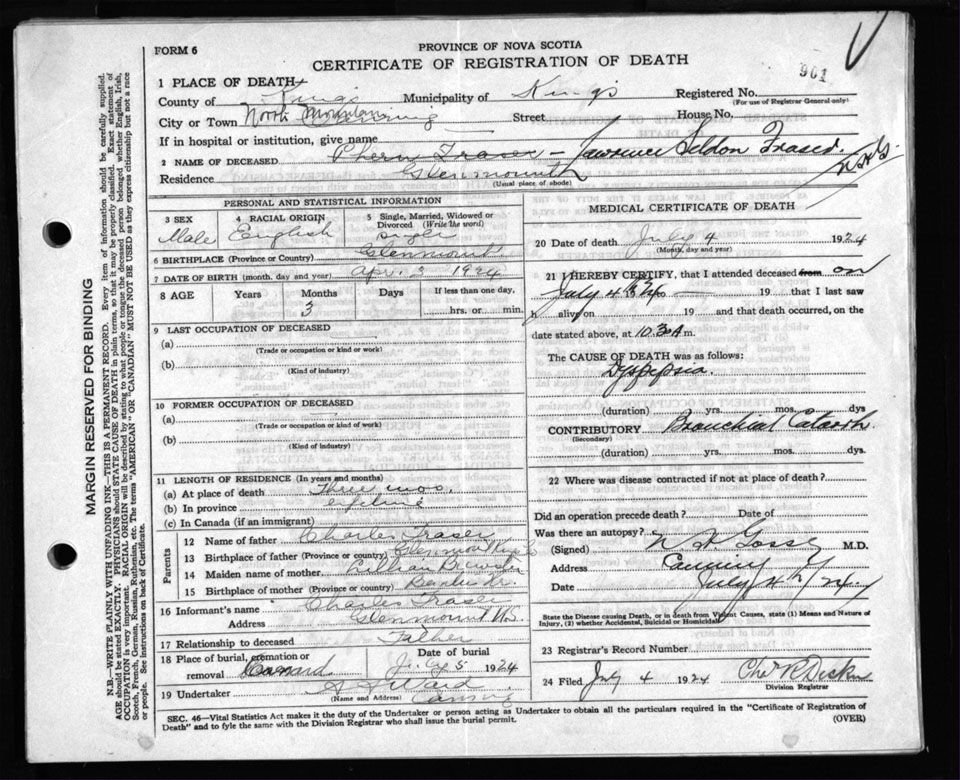 FORM 6
PROVINCE OF NOVA SCOTIA
CERTIFICATE OF REGISTRATION OF DEATH
901
1 PLACE OF DEATH
County of Kings Municipality of Kings Registered No.
(For use of Registrar General only)
City or Town North Mountain Street House No.
If in hospital or institution, give name
2 NAME OF DECEASED Fraser - Lawrence Seldon Fraser.
Residence Glenmount
(Usual place of abode)
PERSONAL AND STATISTICAL INFORMATION
3 SEX Male
4 RACIAL ORIGIN English
5 Single, Married, Widowed or Divorced (Write the word) Single
6 BIRTHPLACE (Province or Country) Glenmount
7 DATE OF BIRTH (month, day and year) Apr. 2 1924
8 AGE Years Months 3 Days If less than one day, hrs. or min.
9 LAST OCCUPATION OF DECEASED
(a)
(Trade or occupation or kind or work)
(b)
(Kind of industry)
10 FORMER OCCUPATION OF DECEASED
(a)
(Trade or occupation or kind of work)
(b)
(Kind of industry)
11 LENGTH OF RESIDENCE (In years and months)
(a) At place of death Three mos.
(b) In province lifetime
(c) In Canada (if an immigrant)
Parents
12 Name of father Charles Fraser
13 Birthplace of father (Province or country) Glenmount
14 Maiden name of mother Lillian
15 Birthplace of mother (Province or country)
16 Informant's name Charles Fraser
Address Glenmount N.S.
17 Relationship to deceased Father
18 Place of burial, cremation or removal Date of burial July 5 1924
19 Undertaker Ward
(Name and Address) Canning
MEDICAL CERTIFICATE OF DEATH
20 Date of death July 4 1924
(Month, day and year)
21 I HEREBY CERTIFY, that I attended deceased from on
July 4 19 24 19 that I last saw
h alive on 19 and that death occurred, on
date stated above, at 10.30 A m.
The CAUSE OF DEATH was as follows:
Dyspepsia.
(duration) yrs. mos. dys
CONTRIBUTORY Bronchial Catarrh.
(Secondary)
(duration) yrs. mos. dys.
22 Where was disease contracted if not at place of death?
Did an operation precede death? Date of
Was there an autopsy?
(Signed) M.D.
Address Canning
Date July 4 /24.
State the Disease causing Death, or in death from Violent Causes, state (1) Means and Nature of
Injury, (2) whether Accidental, Suicidal or Homicidal
23 Registrar's Record Number
24 Filed July 4 1924
Division Registrar
SEC. 46—Vital Statistics Act makes it the duty of the Undertaker or person acting as Undertaker to obtain all the particulars required in the "Certificate of Registration of
Death" and to fyle the same with the Division Registrar who shall issue the burial permit.
(OVER)
MARGIN RESERVED FOR BINDING
N.B—WRITE PLAINLY WITH UNFADING INK—THIS IS A PERMANENT RECORD. Every item of information should be carefully supplied.
AGE should be stated EXACTLY. PHYSICIANS should STATE CAUSE OF DEATH in plain terms, so that it may be properly classified. Exact statement of
OCCUPATION is very important. RACIAL ORIGIN will be described by stating to what people or tongue the deceased person belonged whether English, Irish,
Scotch, French, German, Russian, Ruthenian, etc. The terms "AMERICAN" OR "CANADIAN" MUST NOT BE USED as they express citizenship but not a race
or people. See instructions on back of Certificate.